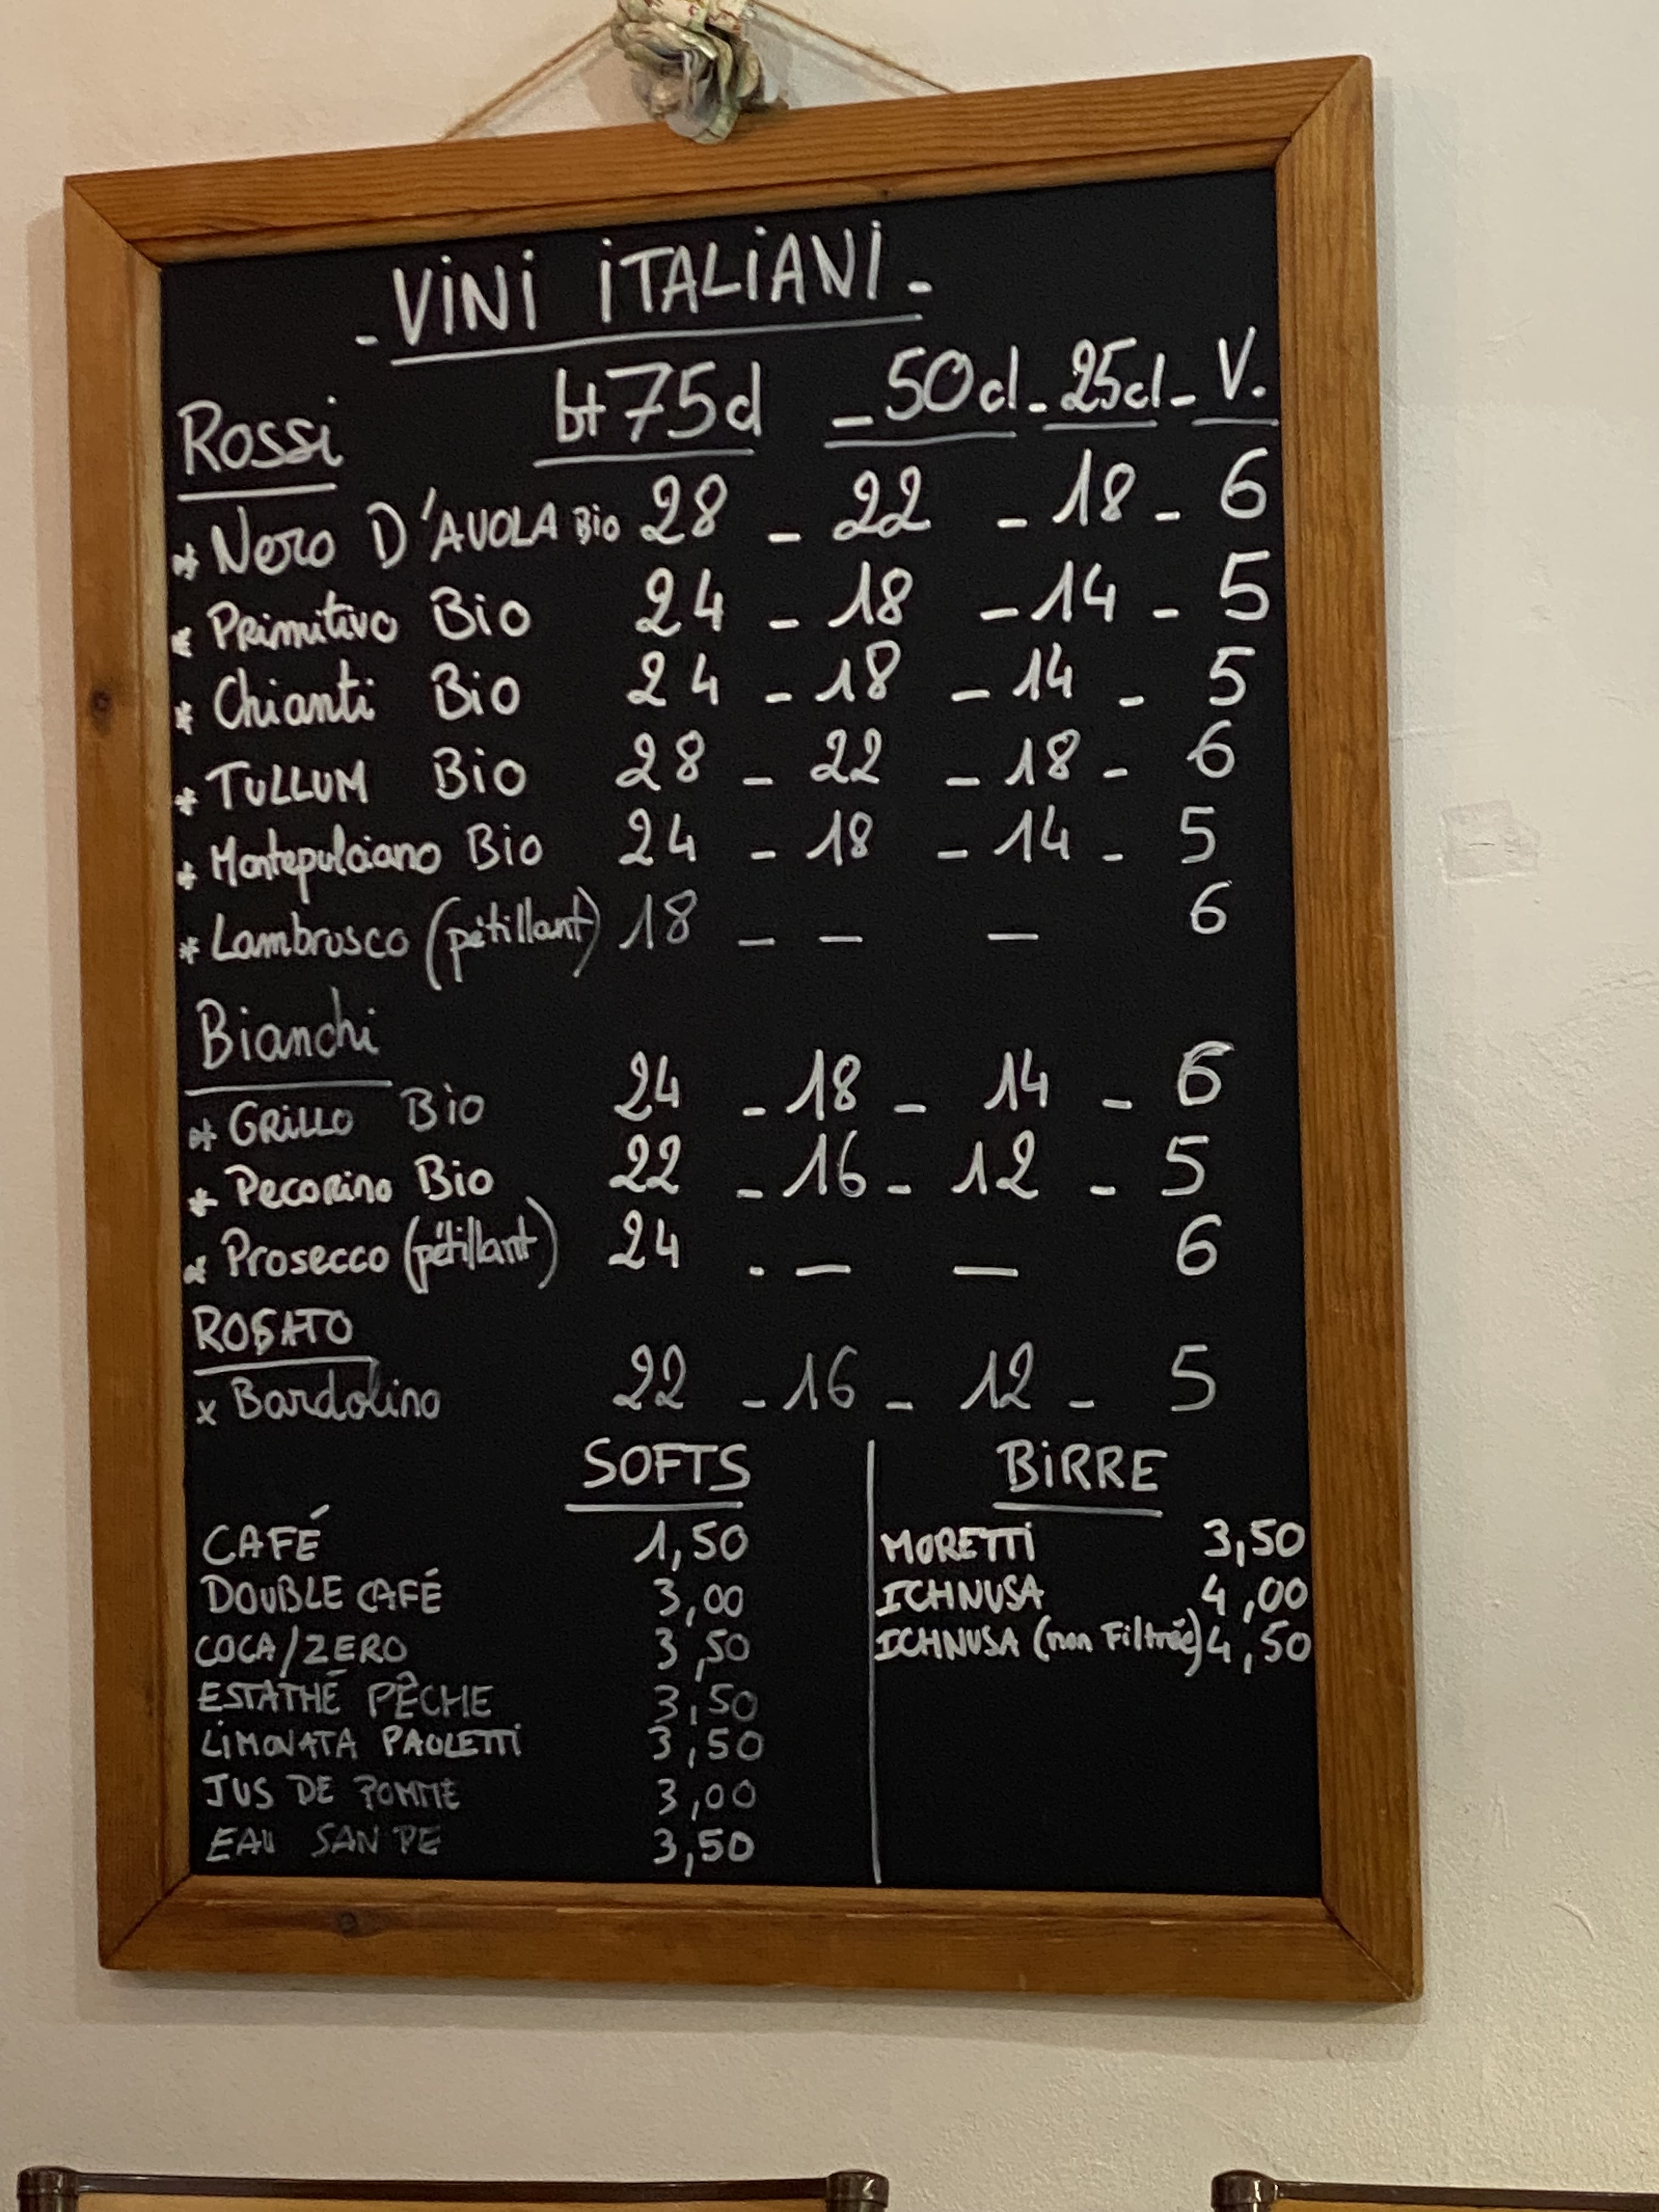 - VINI ITALIANI -
Rossi bt 75cl - 50cl - 25cl - V.
* Nero D'AVOLA Bio 28 - 22 - 18 - 6
* Primitivo Bio 24 - 18 - 14 - 5
* Chianti Bio 24 - 18 - 14 - 5
* TULLUM Bio 28 - 22 - 18 - 6
* Montepulciano Bio 24 - 18 - 14 - 5
* Lambrusco (pétillant) 18 - — — 6
Bianchi
* GRILLO Bio 24 - 18 - 14 - 6
* Pecorino Bio 22 - 16 - 12 - 5
* Prosecco (pétillant) 24 - — — 6
ROSATO
x Bardolino 22 - 16 - 12 - 5
SOFTS
CAFÉ 1,50
DOUBLE CAFÉ 3,00
COCA/ZERO 3,50
ESTATHÉ PÊCHE 3,50
LIMONATA PAOLETTI 3,50
JUS DE POMME 3,00
EAU SAN PE 3,50
BIRRE
MORETTI 3,50
ICHNUSA 4,00
ICHNUSA (non Filtrée) 4,50